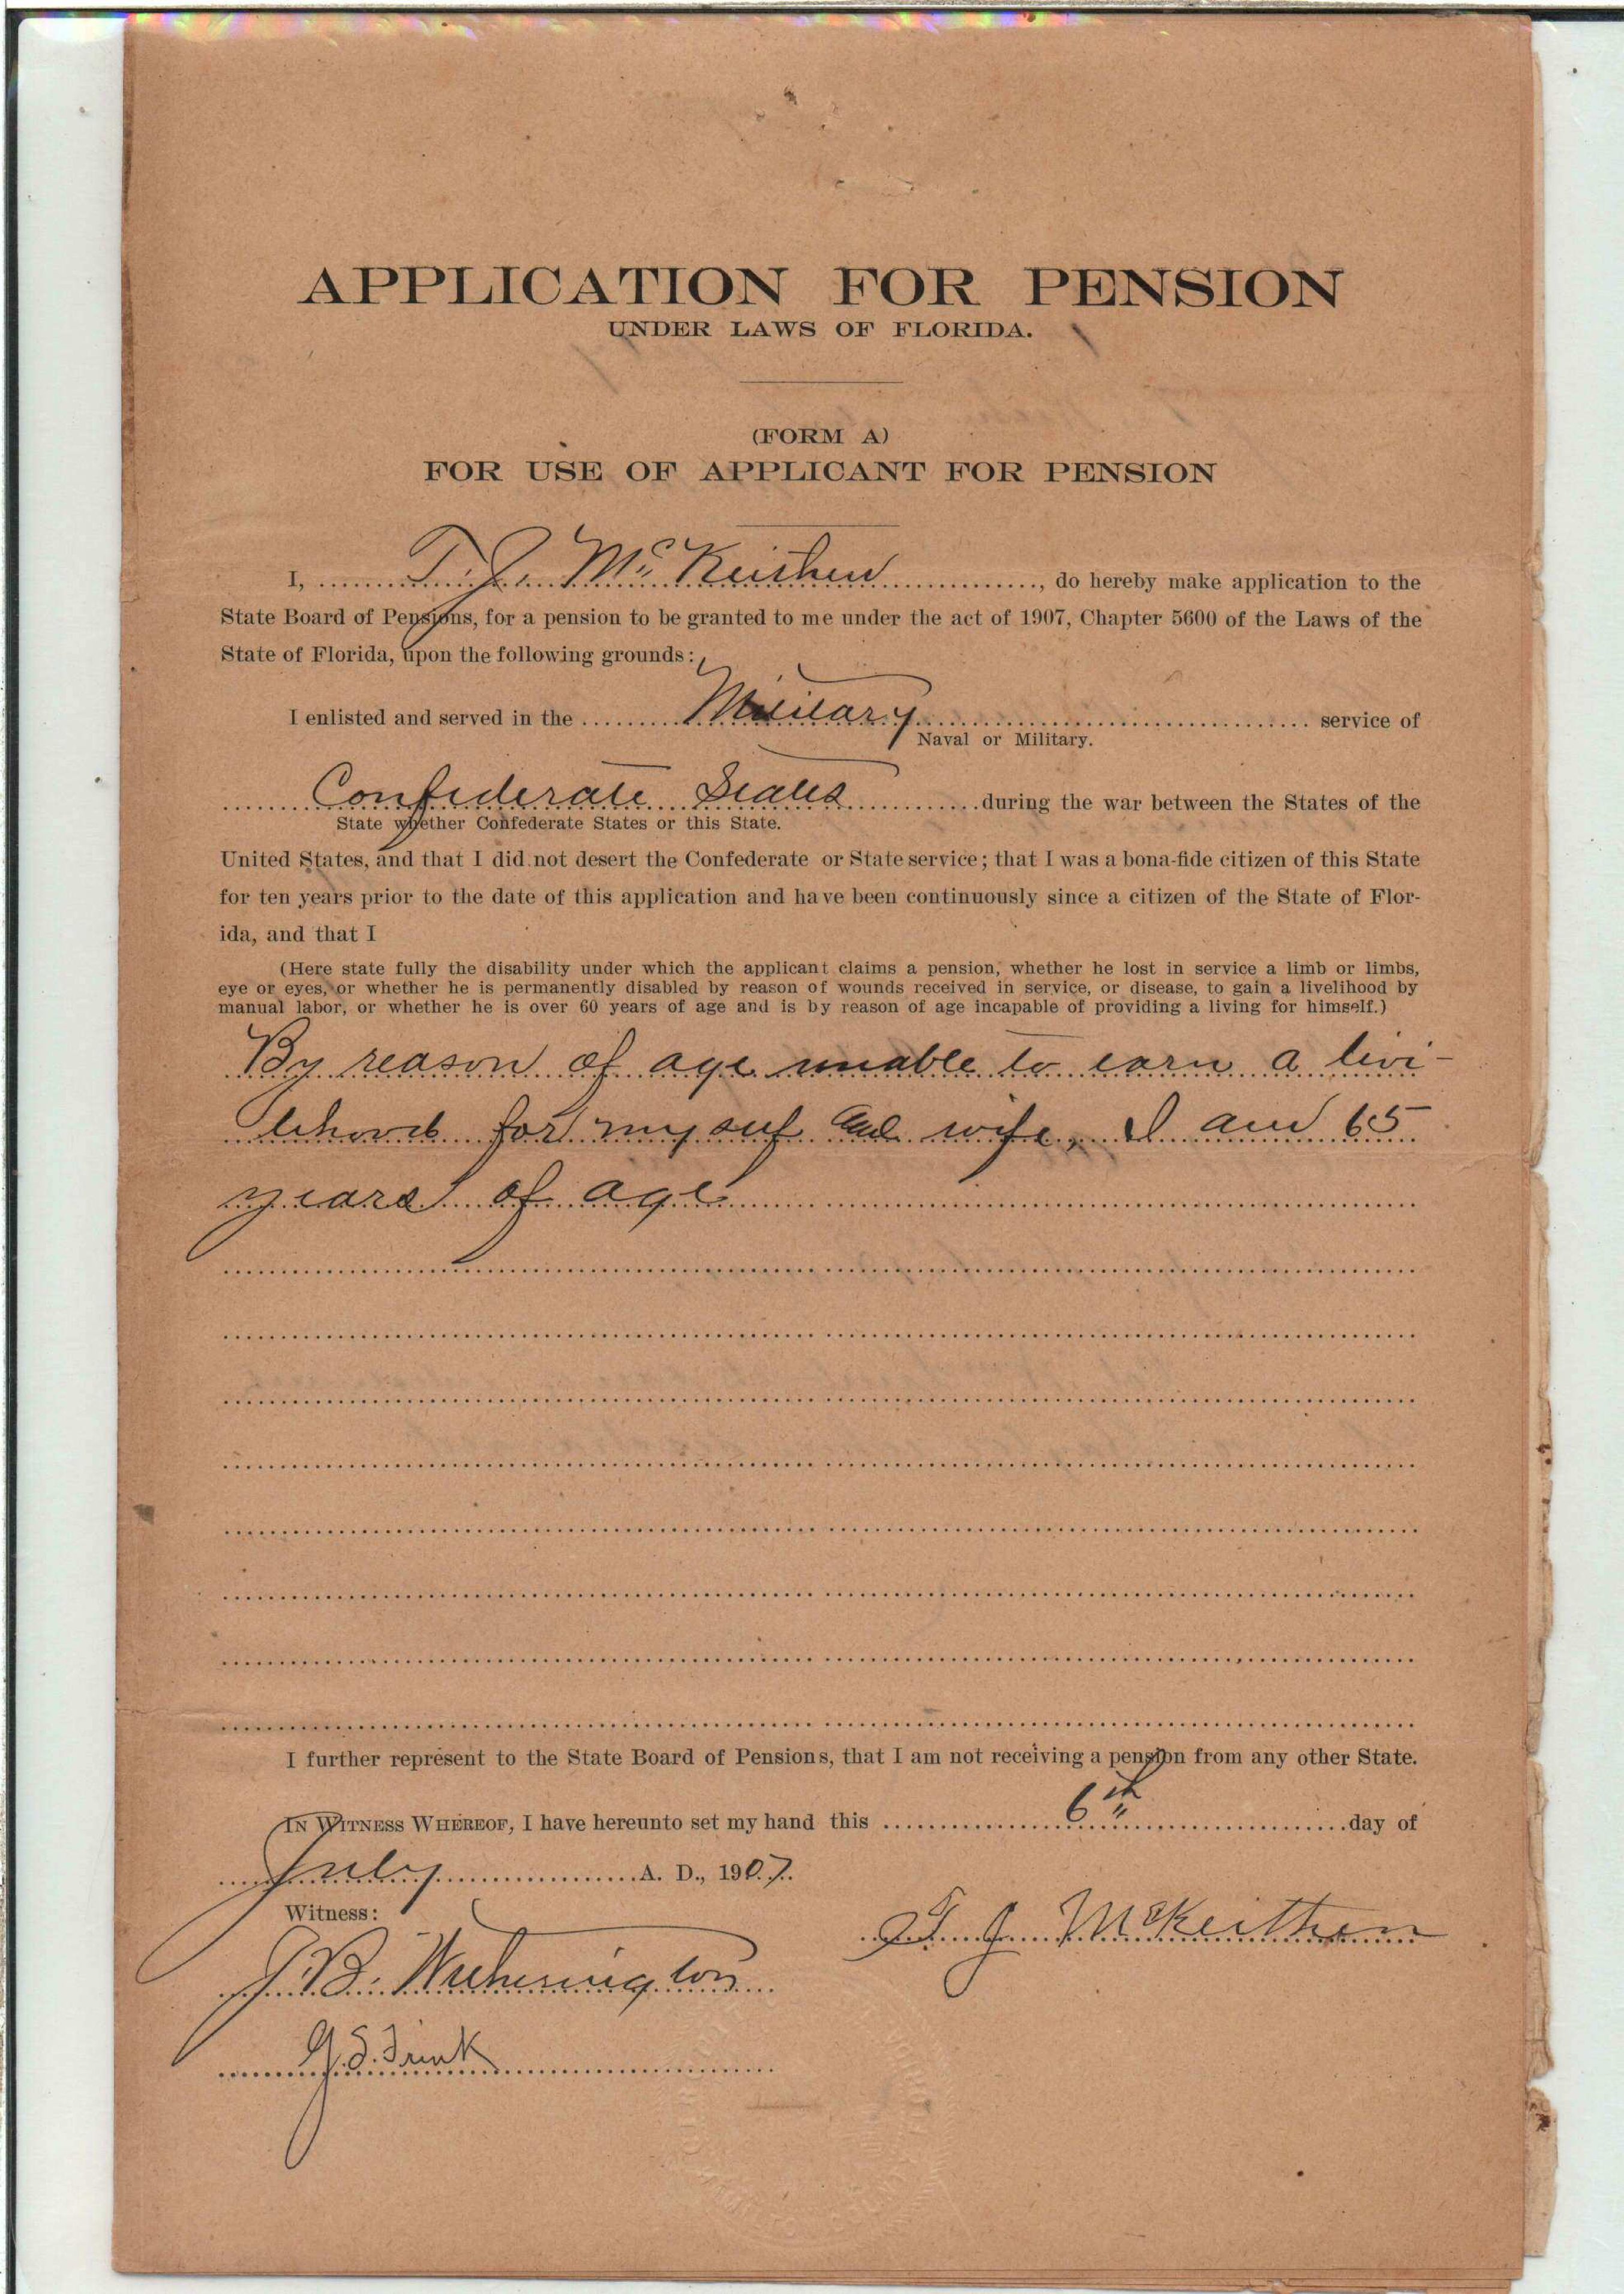 APPLICATION FOR PENSION
UNDER LAWS OF FLORIDA.
(FORM A)
FOR USE OF APPLICANT FOR PENSION
I, T. J. McKeithen, do hereby make application to the
State Board of Pensions, for a pension to be granted to me under the act of 1907, Chapter 5600 of the Laws of the
State of Florida, upon the following grounds:
I enlisted and served in the Military service of
Naval or Military.
Confederate States during the war between the States of the
State whether Confederate States or this State.
United States, and that I did not desert the Confederate or State service; that I was a bona-fide citizen of this State
for ten years prior to the date of this application and have been continuously since a citizen of the State of Flor-
ida, and that I
(Here state fully the disability under which the applicant claims a pension, whether he lost in service a limb or limbs,
eye or eyes, or whether he is permanently disabled by reason of wounds received in service, or disease, to gain a livelihood by
manual labor, or whether he is over 60 years of age and is by reason of age incapable of providing a living for himself.)
By reason of age unable to earn a livi-
lihood for my self and wife, I am 65
years of age
I further represent to the State Board of Pensions, that I am not receiving a pension from any other State.
IN WITNESS WHEREOF, I have hereunto set my hand this 6th day of
July A. D., 1907.
Witness:
T. J. McKeithen
J. B. Wetherington